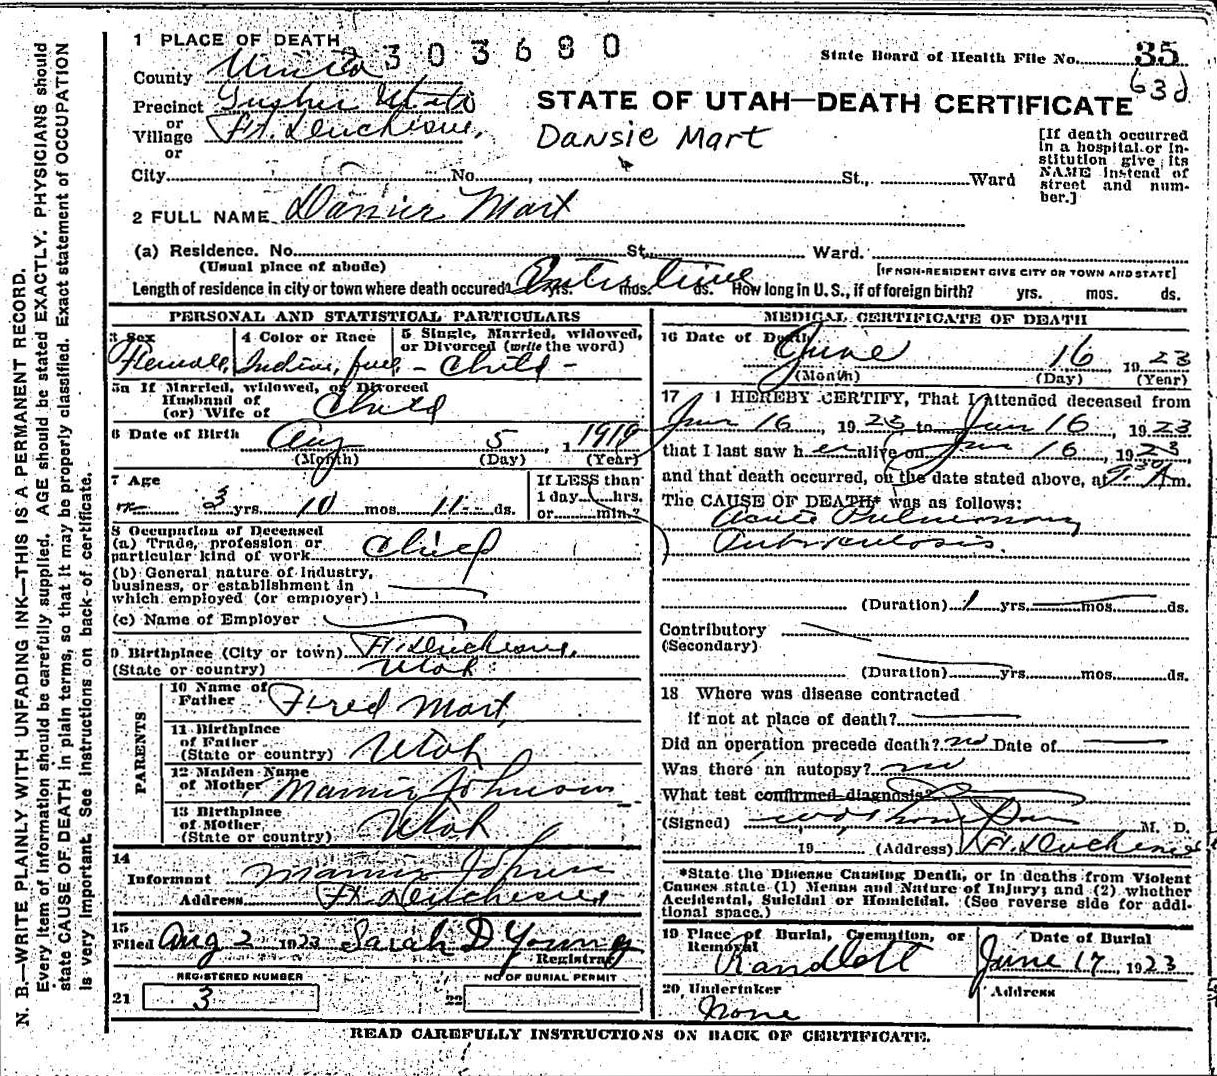 N. B.—WRITE PLAINLY WITH UNFADING INK—THIS IS A PERMANENT RECORD.
Every item of information should be carefully supplied. AGE should be stated EXACTLY. PHYSICIANS should
state CAUSE OF DEATH in plain terms, so that it may be properly classified. Exact statement of OCCUPATION
is very important. See instructions on back of certificate.
1 PLACE OF DEATH
2303680
State Board of Health File No. 35
County
63d
Precinct Utah
STATE OF UTAH—DEATH CERTIFICATE
or
Village Ft. Duchesne,
Dansie Mart
or
City No. , St., Ward
[If death occurred
in a hospital or in-
stitution give its
NAME instead of
street and num-
ber.]
2 FULL NAME Mart
(a) Residence. No. St. Ward.
(Usual place of abode)
[IF NON-RESIDENT GIVE CITY OR TOWN AND STATE]
Length of residence in city or town where death occured? yrs. mos. ds. How long in U. S., if of foreign birth? yrs. mos. ds.
Entire time
PERSONAL AND STATISTICAL PARTICULARS
3 Sex
Female
4 Color or Race
Indian, full
5 Single, Married, widowed,
or Divorced (write the word)
- Child -
5a If Married, widowed, or Divorced
Husband of
(or) Wife of Child
6 Date of Birth Aug 5 1 1919
(Month) (Day) (Year)
7 Age
3 yrs. 10 mos. 11 ds.
If LESS than
1 day hrs.
or min.?
8 Occupation of Deceased
(a) Trade, profession or
particular kind of work Child
(b) General nature of industry,
business, or establishment in
which employed (or employer)
(c) Name of Employer
9 Birthplace (City or town) Ft. Duchesne,
(State or country) Utah
PARENTS
10 Name of
Father Fred Mart
11 Birthplace
of Father
(State or country) Utah
12 Maiden Name
of Mother Mamie Johnson
13 Birthplace
of Mother
(State or country) Utah
14
Informant Mamie
Address Ft. Duchesne
15
Filed Aug 2 1923 Sarah D Young
Registrar
REGISTERED NUMBER
21 3
NO OF BURIAL PERMIT
22
MEDICAL CERTIFICATE OF DEATH
16 Date of Death
June 16 1923
(Month) (Day) (Year)
17 I HEREBY CERTIFY, That I attended deceased from
Jun 16, 1923 to Jun 16, 1923
that I last saw her alive on Jun 16, 1923
and that death occurred, on the date stated above, at A.m.
The CAUSE OF DEATH* was as follows:
Acute Pulmonary
Tuberculosis.
(Duration) 1 yrs. mos. ds.
Contributory
(Secondary)
(Duration) yrs. mos. ds.
18 Where was disease contracted
if not at place of death?
Did an operation precede death? no Date of
Was there an autopsy? no
What test confirmed diagnosis?
(Signed) M. D.
19 (Address) Ft. Duchesne
*State the Disease Causing Death, or in deaths from Violent
Causes state (1) Means and Nature of Injury; and (2) whether
Accidental, Suicidal or Homicidal. (See reverse side for addi-
tional space.)
19 Place of Burial, Cremation, or
Removal
Randlett
Date of Burial
June 17 1923
20 Undertaker
None
Address
READ CAREFULLY INSTRUCTIONS ON BACK OF CERTIFICATE.